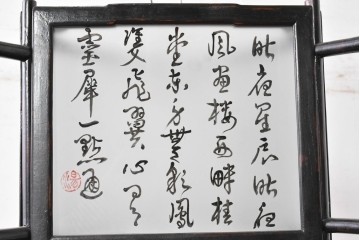 昨夜星辰昨夜
風畫樓西畔桂
堂東身無彩鳳
雙飛翼心有
靈犀一點通